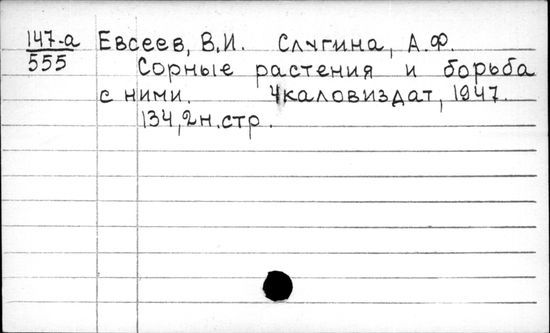 147-а Евсеев, В.И. Слугина, А.Ф.
555 Сорные растения и борьба
с ними. Чкаловиздат, 1947.
134, 2н.стр.